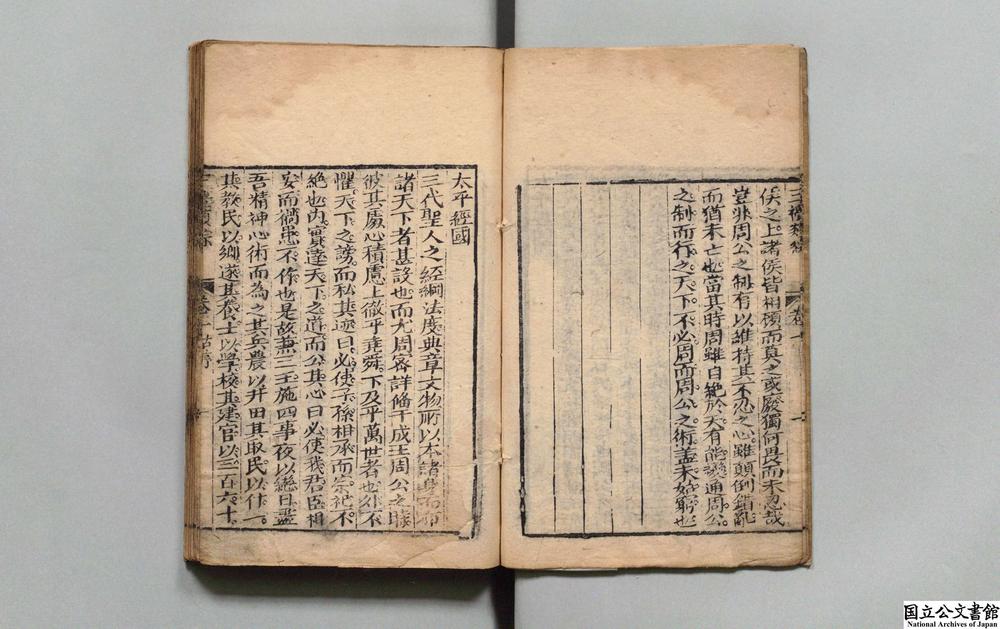 侯之上諸侯皆相領而莫之或廢獨何畏而未忍哉
豈非周公之制有以維持其不忍之心雖顛倒錯亂
而猶未亡也當其時周雖自絶於天有能變通周公
之制而行之天下不必周而周公之術蓋未始窮也
太平經國
三代聖人之經綱法度典章文物所以本諸身而
諸天下者甚設也而尤周宻詳備于成王周公之時
彼其處心積慮上徹乎堯舜下及乎萬世者也外不
懼天下之謗而私其迹曰必使子孫相承而宗祀不
絶也内實達天下之道而公其心曰必使我君臣相
安而禍患不作也是故兼三王施四事夜以繼日盡
吾精神心術而為之其兵農以井田其取民以什一
其教民以鄉遂其養士以學校其建官以三百六十
卷一
国立公文書館
National Archives of Japan